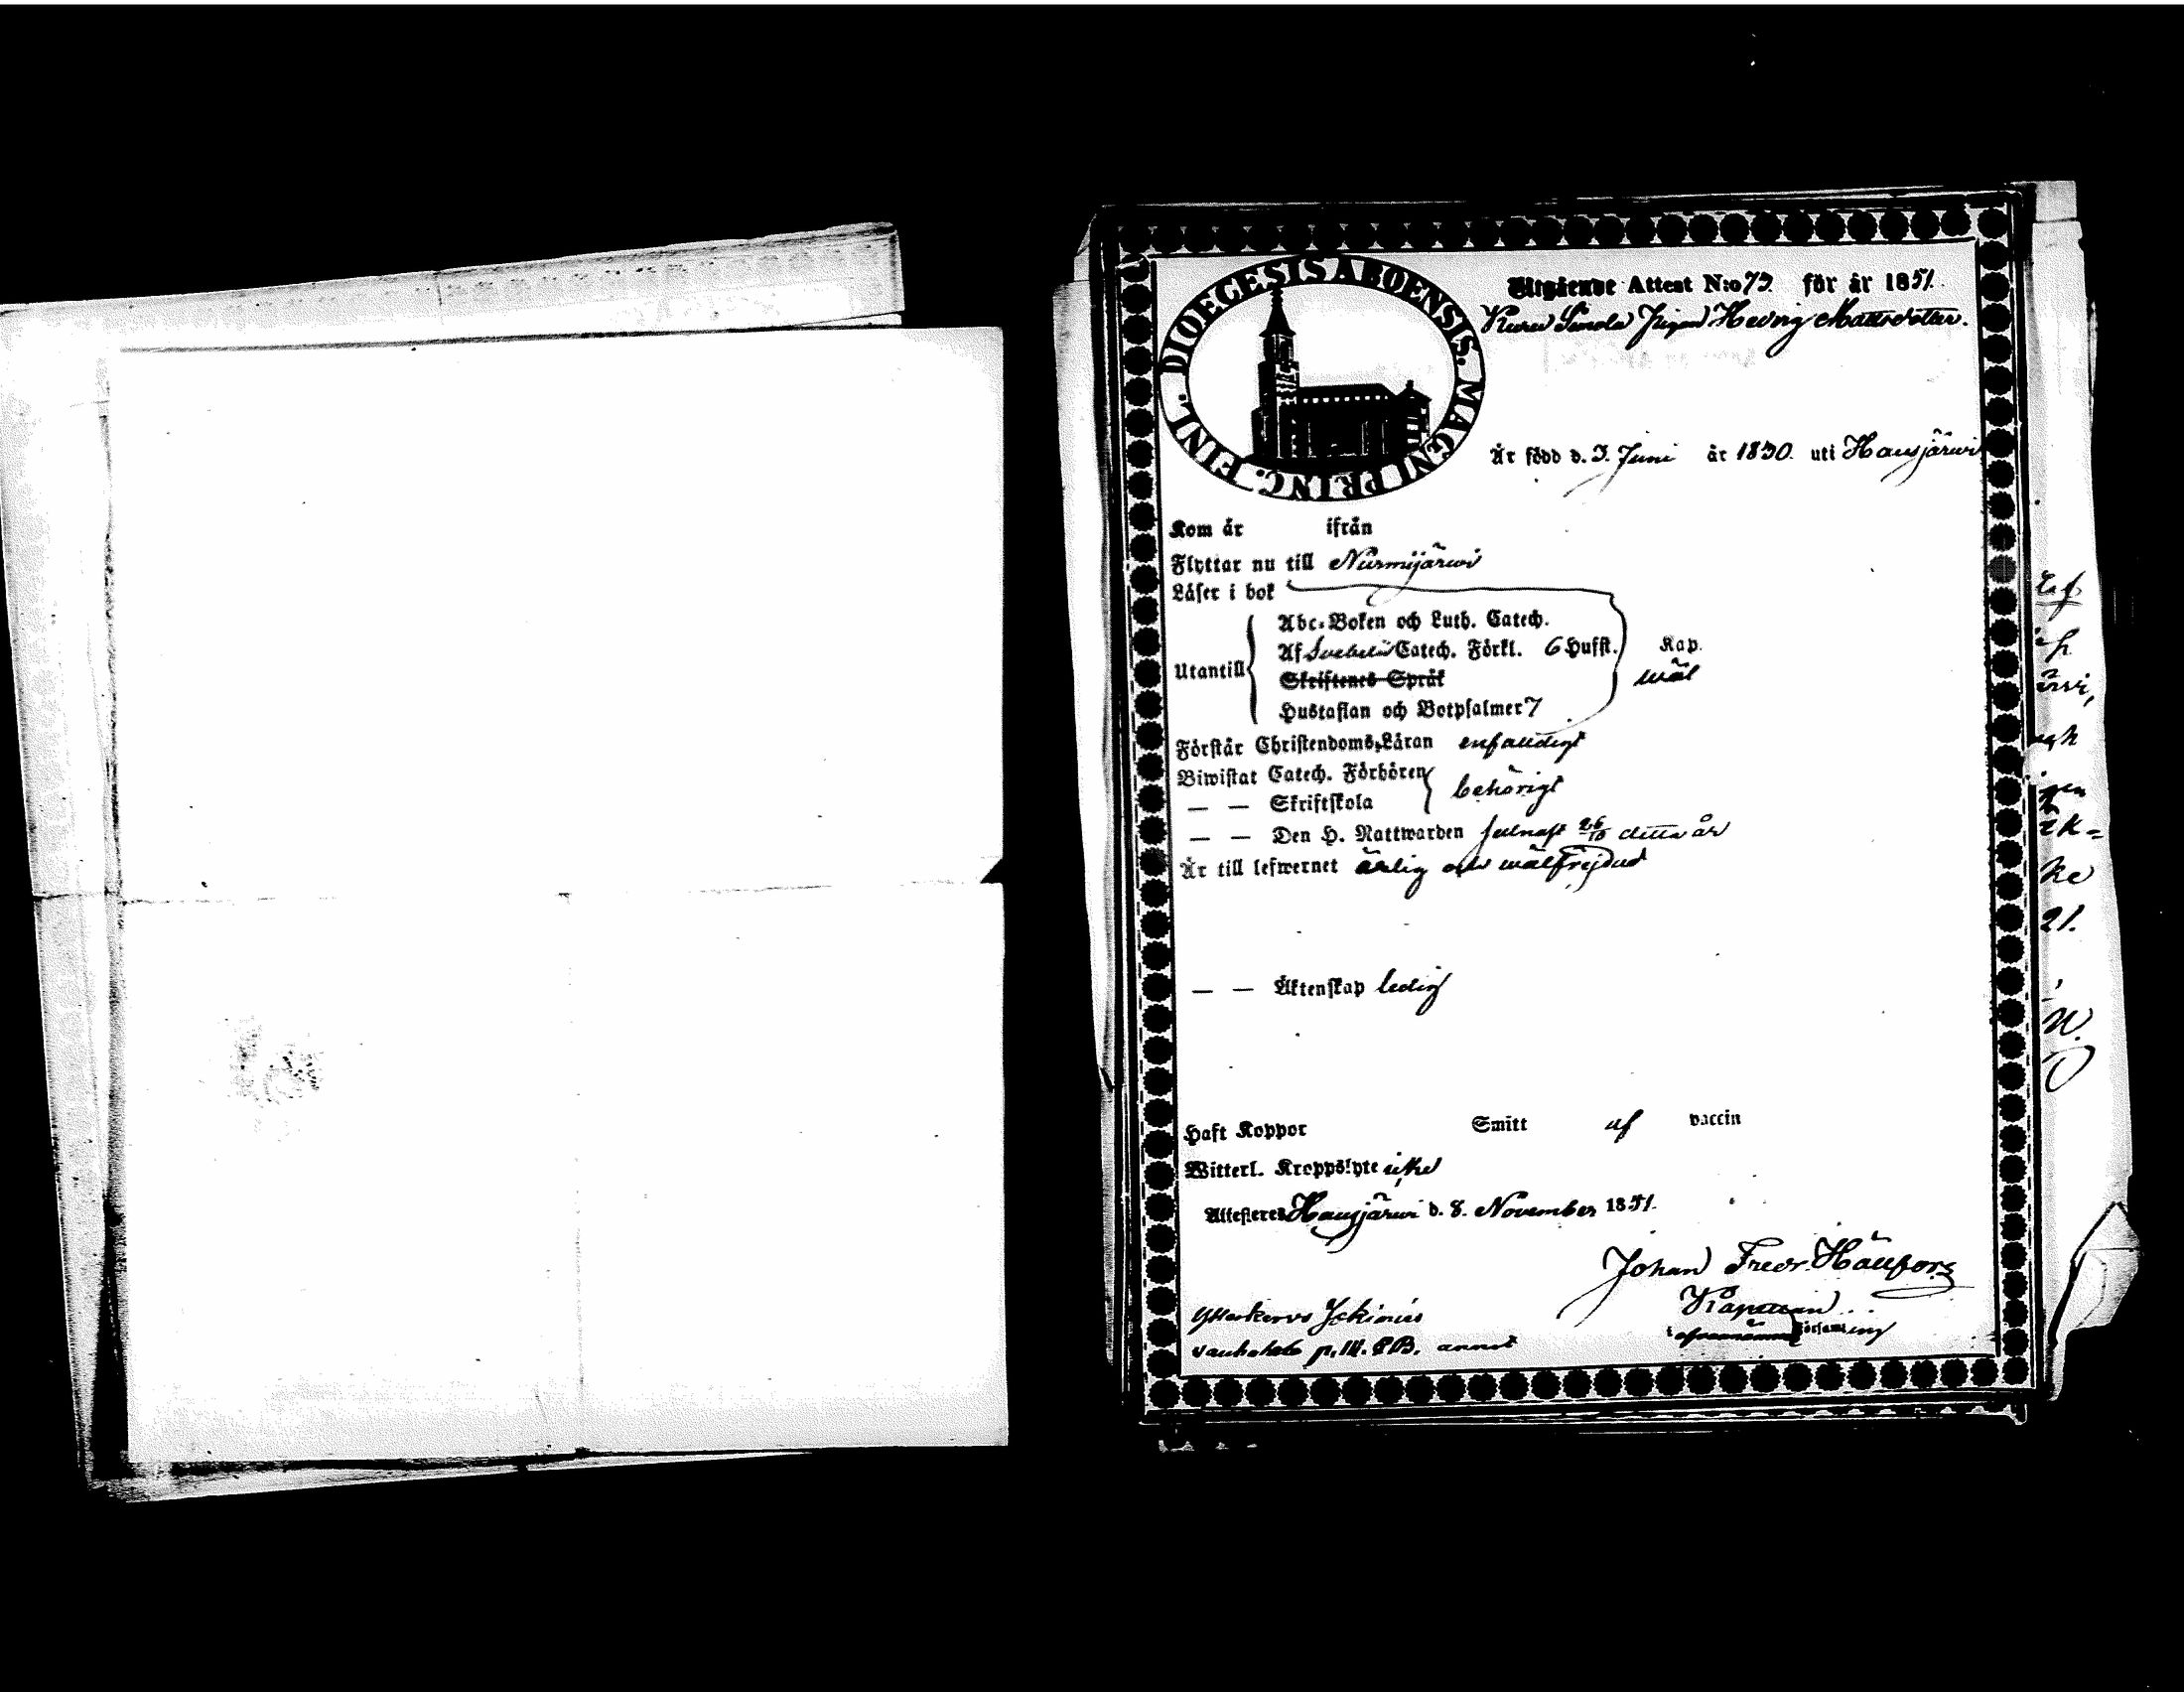 DIOECESIS ABOENSIS. MAGNI PRINC. FINL.
Utgående Attest N:o 73. för år 1851.
Pigan Hedvig Mattsdotter.
Är född d. 3. Juni år 1830. uti Hausjärwi
Kom år ifrån
Flyttar nu till Nurmijärwi
Läser i bok
Abc-Boken och Luth. Catech.
Utantill
Af Svebelii Catech. Förkl. 6 Hufst. Kap.
Skriftenes Språk
wäl
Hustaflan och Botpsalmer 7
Förstår Christendoms-Läran enfaldigt
Biwistat Catech. Förhören
behörigt
— — Skriftskola
— — Den H. Nattwarden sednast 26/10 detta år
Är till lefwernet ärlig och wälfrejdad
— — Äktenskap ledig
Haft Koppor Smitt af vaccin
Witterl. Kroppslyte icke
Attesteres Hausjärwi d. 8. November 1851.
Johan Fredr. Hällfors
Kapellan
i ofvannämnde Församling
p. 111. annot
ärwi,
21.